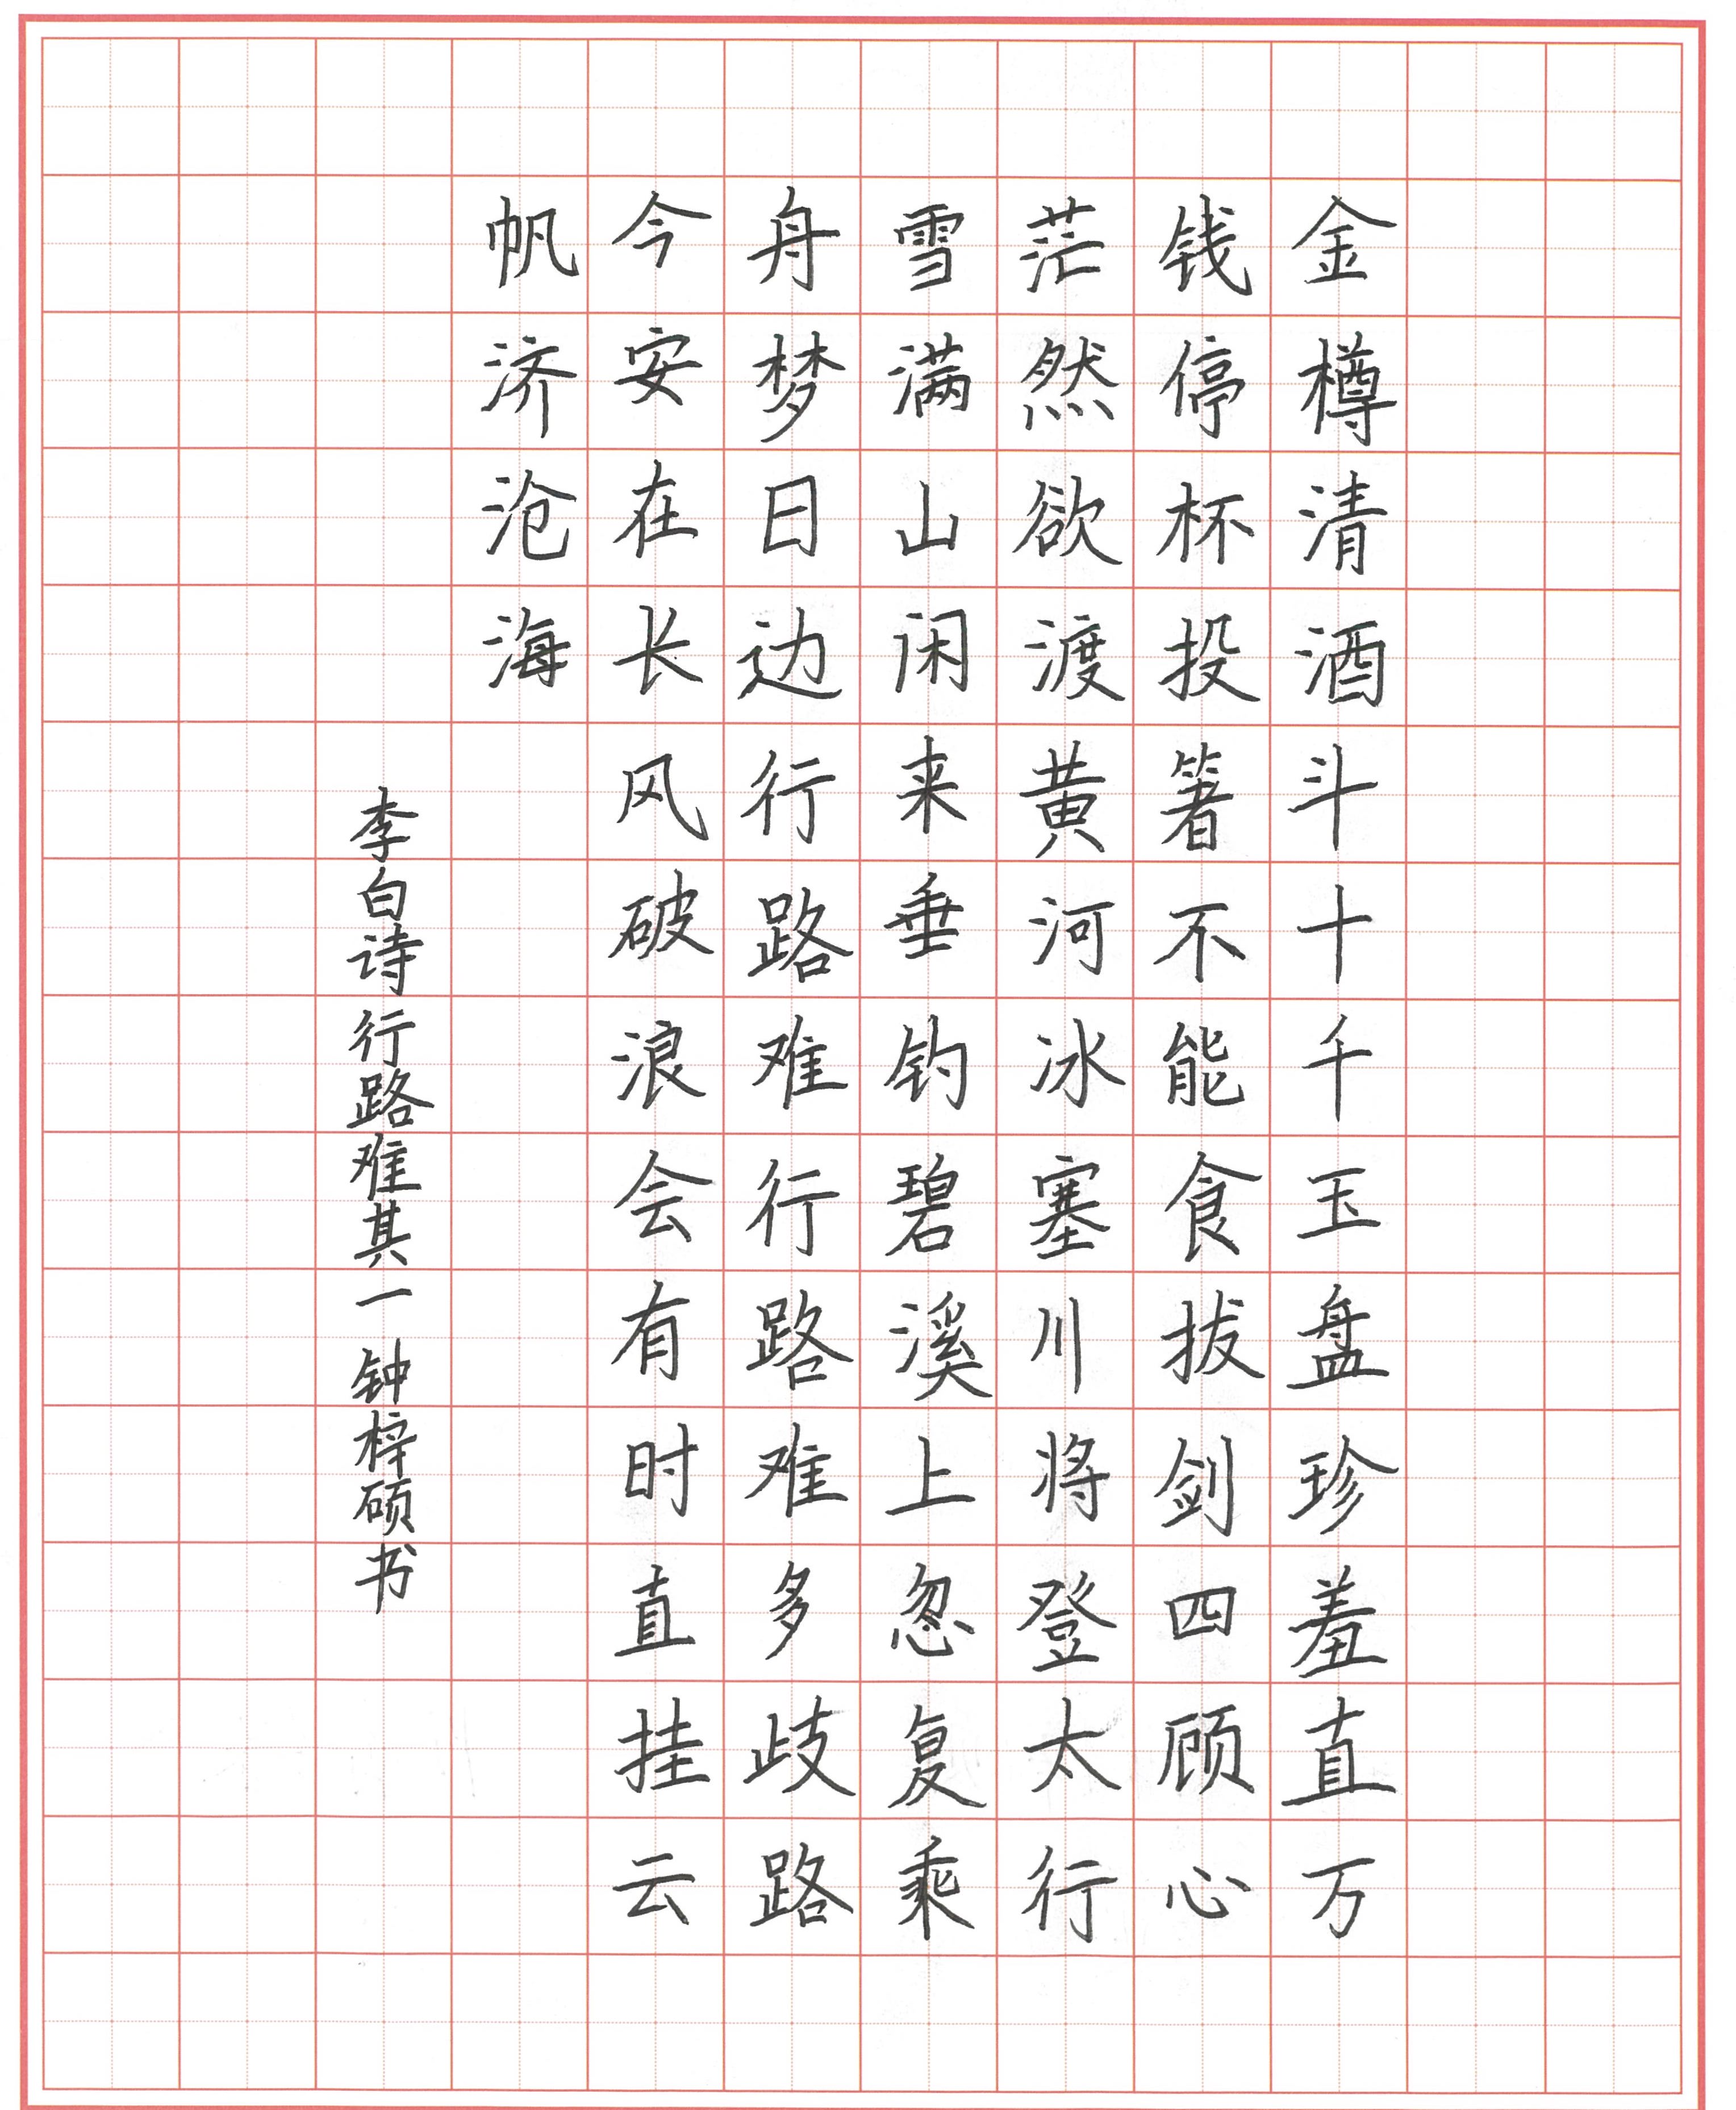 金樽清酒斗十千玉盘珍羞直万
钱停杯投箸不能食拔剑四顾心
茫然欲渡黄河冰塞川将登太行
雪满山闲来垂钓碧溪上忽复乘
舟梦日边行路难行路难多歧路
今安在长风破浪会有时直挂云
帆济沧海
李白诗 行路难其一 钟梓硕书